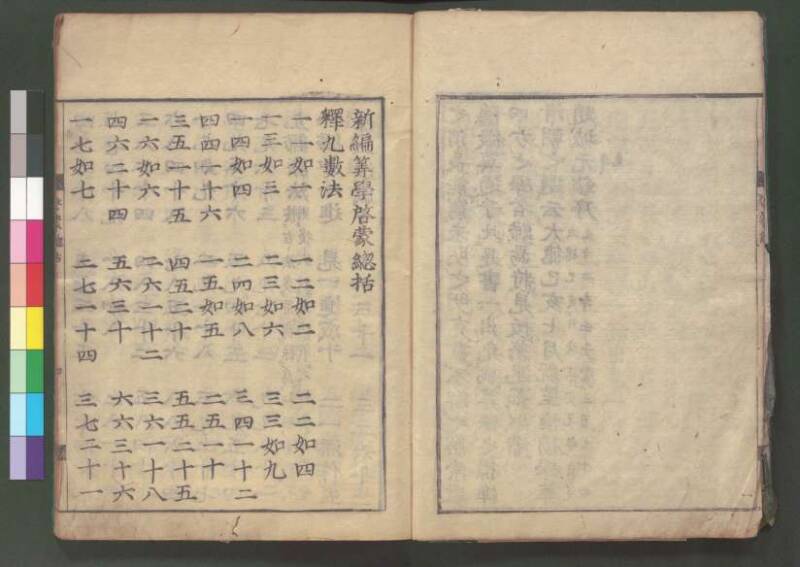 新編筭學啓蒙緫括
釋九數法
一一如一 一二如二 二二如四
一三如三 二三如六 三三如九
一四如四 二四如八 三四一十二
四四一十六 一五如五 二五一十
三五一十五 四五二十 五五二十五
一六如六 二六一十二 三六一十八
四六二十四 五六三十 六六三十六
一七如七 二七一十四 三七二十一